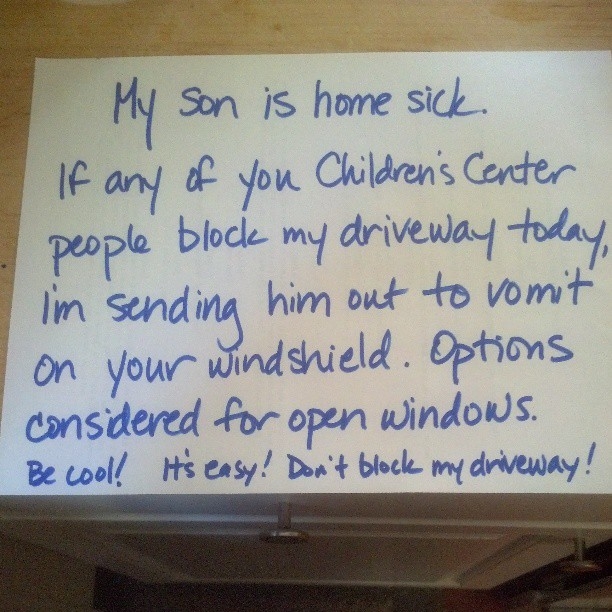 My son is home sick.
If any of you Children's Center
people block my driveway today,
I'm sending him out to vomit
on your windshield. Options
considered for open windows.
Be cool! It's easy! Don't block my driveway!